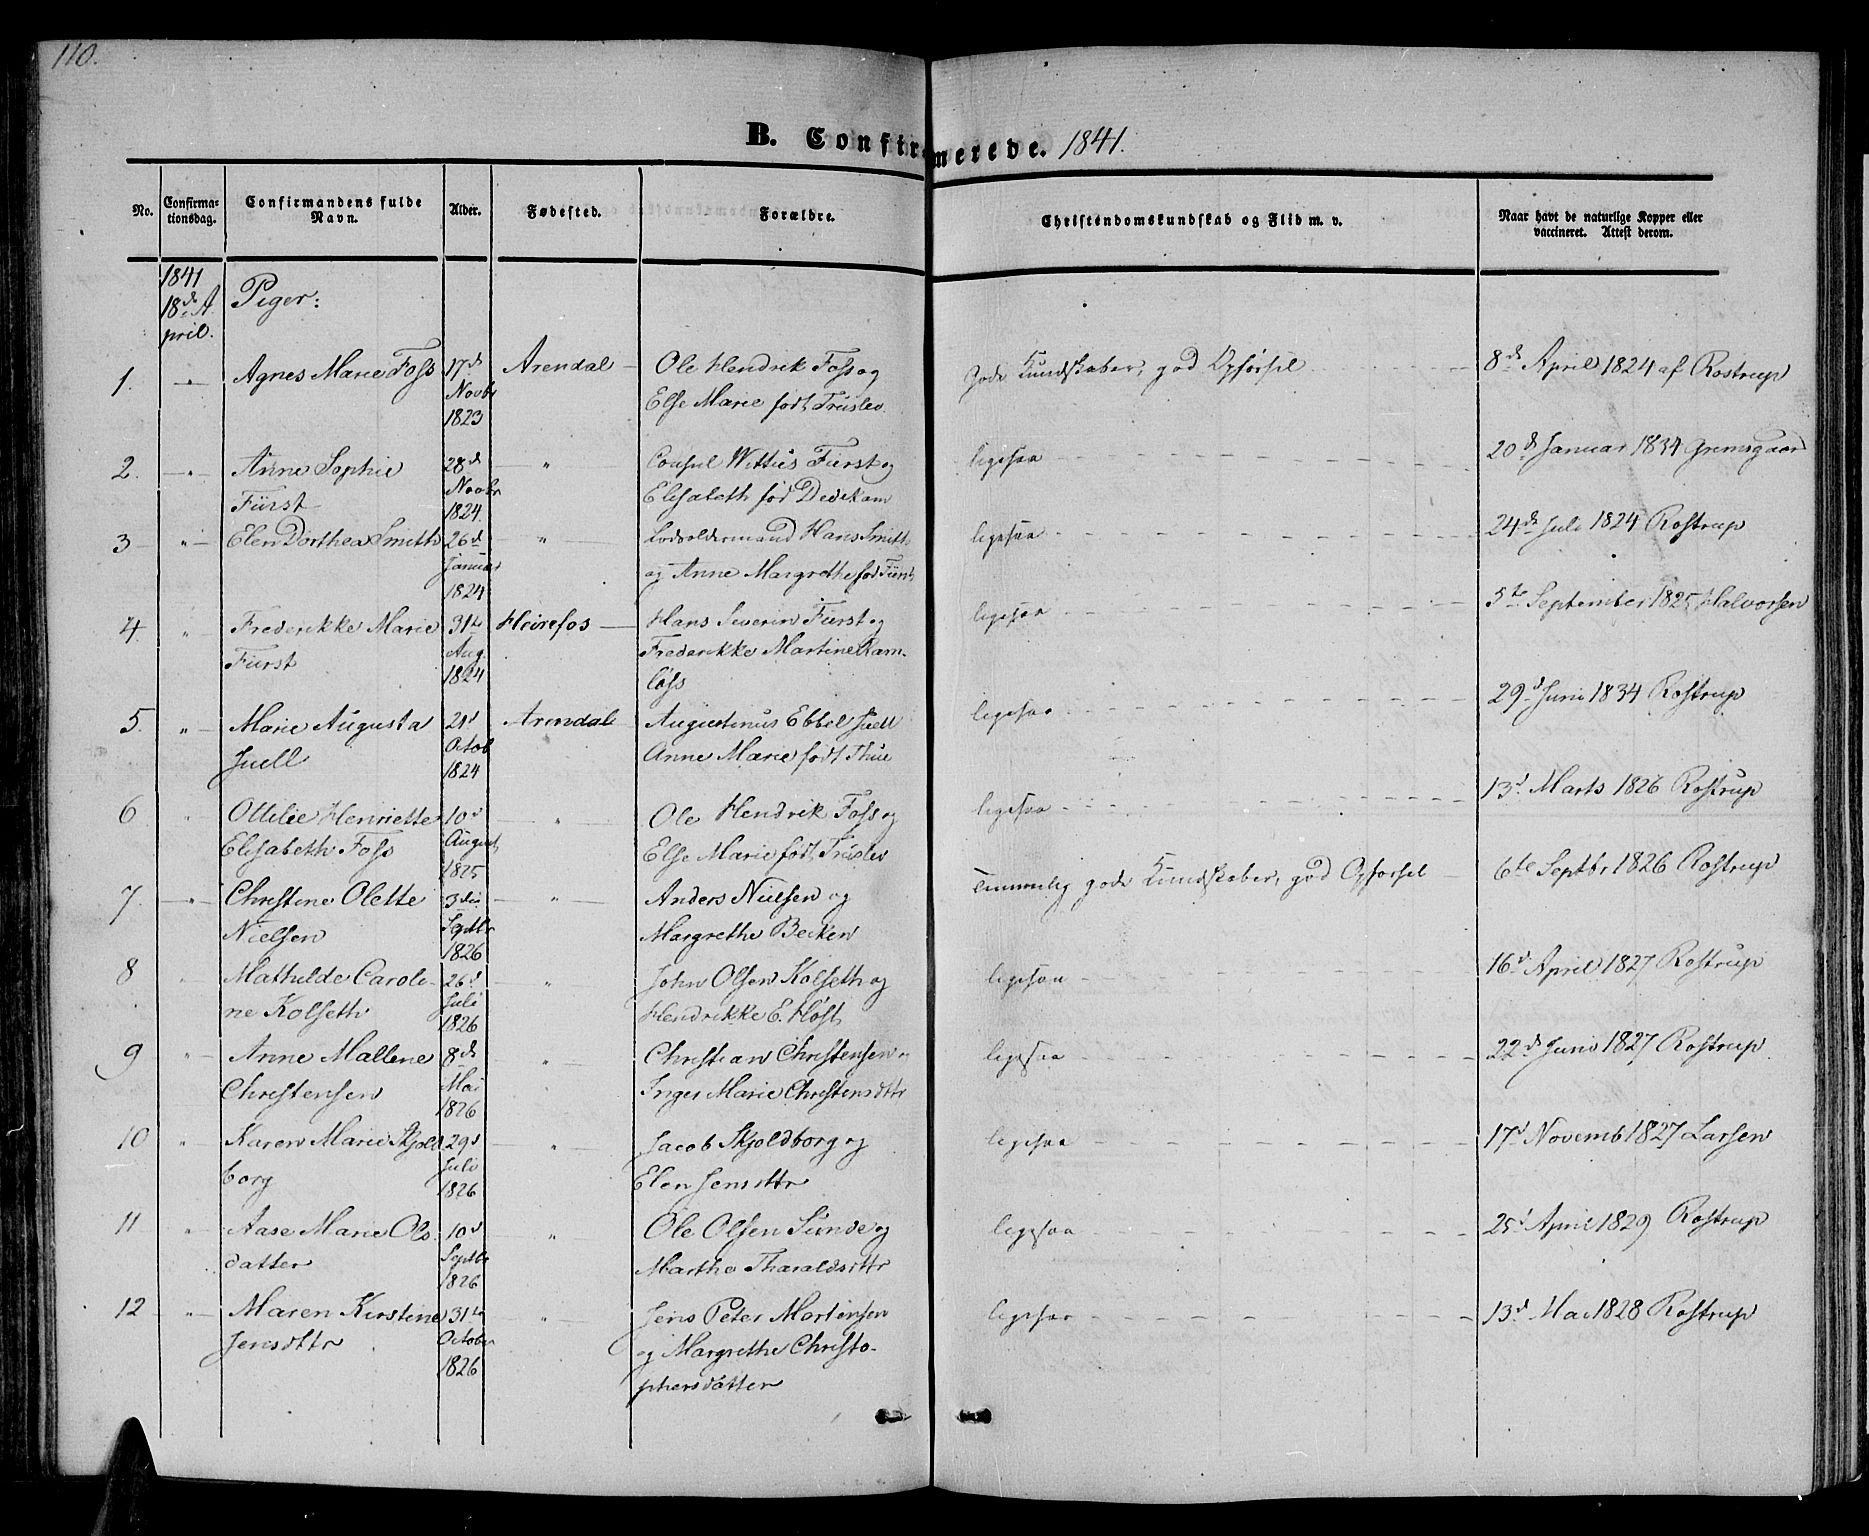 110.
B. Confirmerede. 1841.
No.
Confirma-
tionsdag.
Confirmandens fulde
Navn.
Alder.
Fødested.
Forældre.
Christendomskundskab og Flid m. v.
Naar havt de naturlige Kopper eller
vaccineret. Attest derom.
1841
18de A
pril.
Piger:
1. " Agnes Marie Foss 17d Novbr 1823 Arendal Ole Hendrik Foss og
Else Marie født
Gode Kundskaber, god Opførsel 8d April 1824 af Rostrup
2. " Anne Sophie
Fürst 28d Novbr 1824 " Consul Wittus Fürst og
Elisabeth fød Dedekam
ligesaa 20d Januar 1834 Gremsgaard
3 " Elen Dorthea Smith 26d Januar 1824 " Hans Smith
og Anne Margrethe fød Fürst
ligesaa 24de Juli 1824 Rostrup
4 " Frederikke Marie
Fürst 31te Aug. 1824 Heirefos Hans Severin Fürst og
Frederikke Martine Ram-
löss
ligesaa 5te September 1825 Halvorsen
5. " Marie Augusta
Juell 21d Octob 1824 Arendal Augustinus Ebbel Juell
Anne Marie født Thue
ligesaa 29d Juni 1834 Rostrup
6 " Ottilie Henriette
Elisabeth Foss 10d August 1825 " Ole Hendrik Foss og
Else Marie født
ligesaa 13d Marts 1826 Rostrup
7. " Christine Olette
Nielsen 3die Septbr 1826 " Anders Nielsen og
Margrethe Becken
Temmelig gode Kundskaber, god Opførsel 6te Septbr 1826 Rostrup
8 " Mathilde Caroli-
ne Kolseth 26d Juli 1826 " John Olsen Kolseth og
Hendrikke E. Høst
ligesaa 16d April 1827 Rostrup
9 " Anne Mallene
Christensen 8de Mai 1826 " Christian Christensen o
Inger Marie Christensdttr
ligesaa 22d Juni 1827 Rostrup.
10 " Karen Marie Skjold
borg 29d Juli 1826 " Jacob Skjoldborg og
Elen Jensdttr
ligesaa 17d Novemb 1827 Larsen
11 " Aase Marie Ols-
datter 10d Septbr 1826 " Ole Olsen Sunde og
Marthe Tharaldsdttr
ligesaa 25d April 1829 Rostrup
12 " Maren Kirstine
Jensdttr 31te October 1826 " Jens Peter Mortensen
og Margrethe Christo-
phersdatter
ligesaa 13d Mai 1828 Rostrup